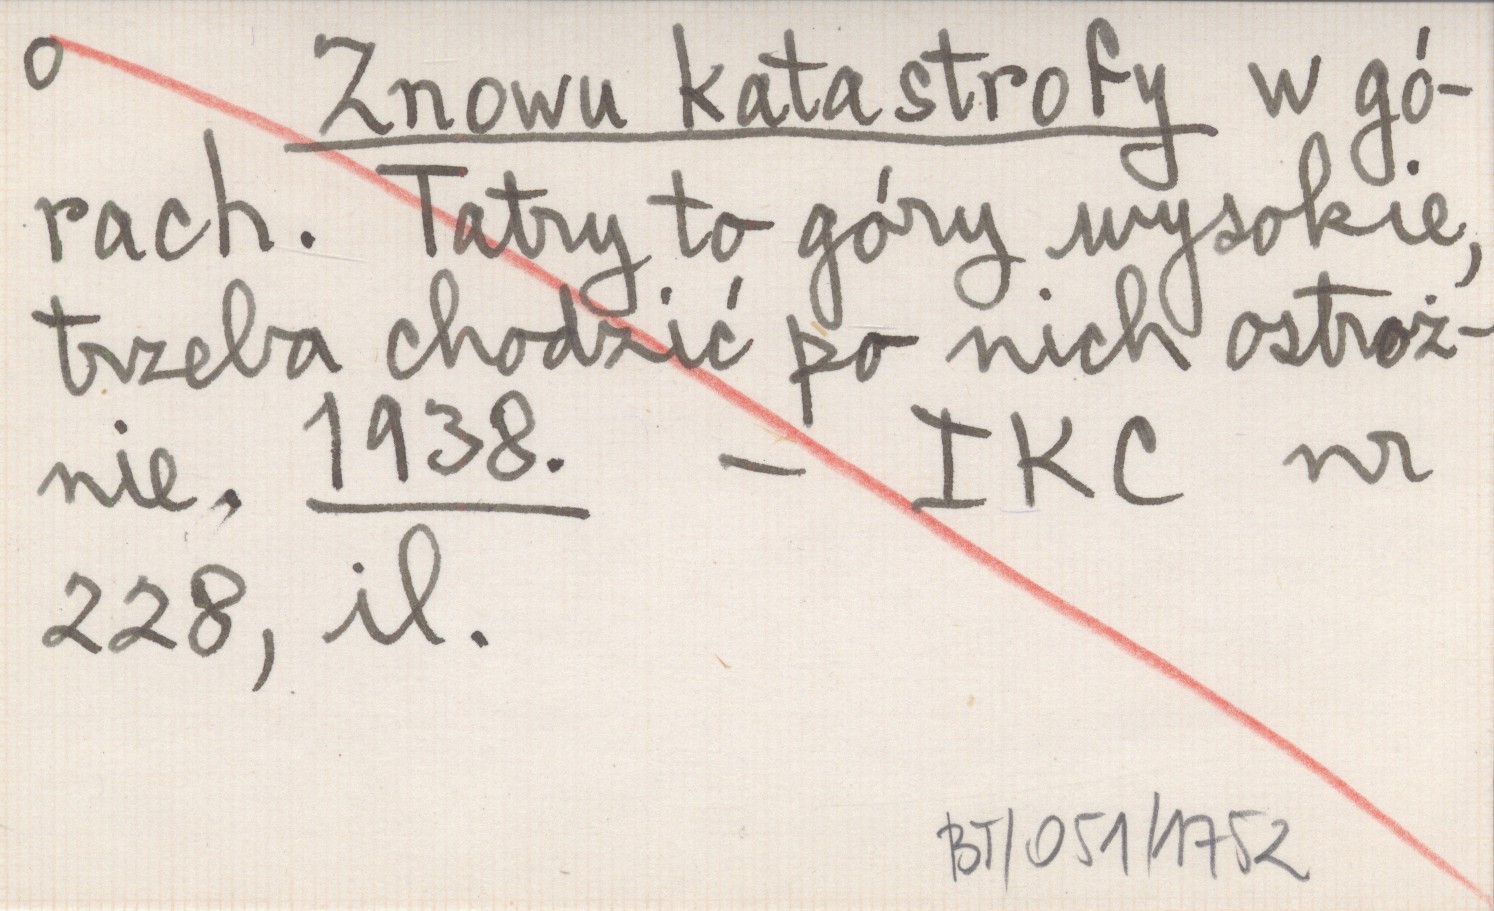 o Znowu katastrofy w gó-
rach. Tatry to góry wysokie,
trzeba chodzić po nich ostroż-
nie. 1938. – IKC nr
228, il.
BT/051/1752